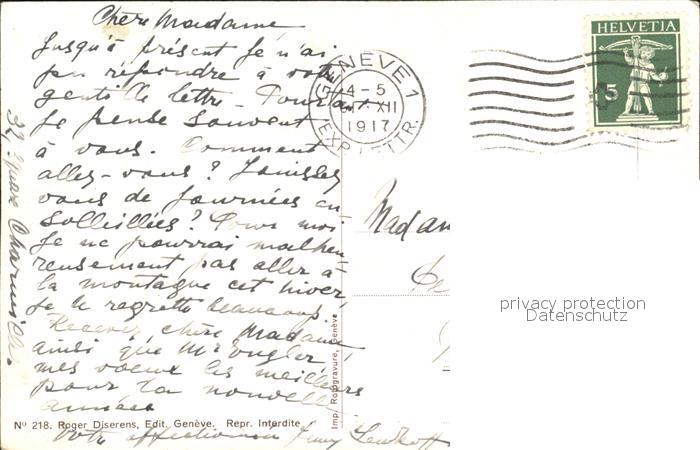 Chère Madame
Jusqu'à présent je n'ai
pu répondre à votre
gentille lettre - Pourtant
Je pense souvent
à vous. Comment
allez-vous? Jouissez
vous de journées en-
solleillées? Pour moi
je ne pourrai malheu-
reusement pas aller à
la montagne cet hiver,
je le regrette beaucoup
Recevez chère Madame
ainsi que Mr
mes voeux les meilleurs
pour la nouvelle
année
Votre
32, Square Charmilles.
GENÈVE 1
4-5
XII
1917
EXP. LETTR.
HELVETIA
5
Madam
privacy protection
Datenschutz
Imp. Rotogravure, Genève
No 218. Roger Diserens, Edit. Genève. Repr. Interdite